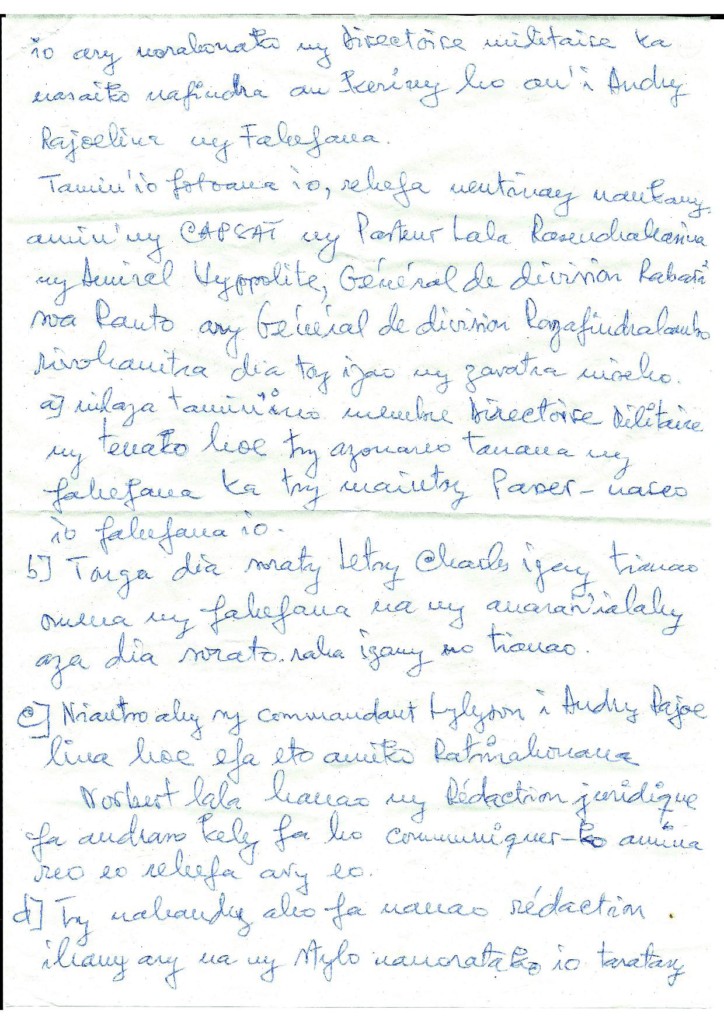 io ary norabonako ny Directoire militaire ka
nasaiko nafindra an keriny ho an'i Andry
Rajoelina ny Fahefana.
Tamin'io fotoana io, rehefa nentinay nankany
amin'ny CAPSAT ny Pasteur Lala Rasendrahasina
ny Amiral Hyppolite, Général de division Rabari
soa Ranto ary Général de division Razafindralambo
rivohanitra dia toy izao ny zavatra niseho.
a] nilaza tamin'ireo membre Directoire Militaire
ny tenako hoe tsy azonareo tanana ny
fahefana ka tsy maintsy Passer-nareo
io fahefana io.
b] Tonga dia soraty Letsy Charles izany tianao
omena ny fahefana na ny anaran'ialahy
aza dia sorato raha izany no tianao.
c] Niantso ahy ny commandant Lylyson i Andry Rajoe
lina hoe efa eto amiko Ratsirahonana
Norbert lala hanao ny Rédaction juridique
fa andraso kely fa ho communiquer-ko amina
reo eo rehefa avy eo.
d] Tsy nahandry aho fa nanao rédaction
ihany ary na ny stylo nanoratako io taratasy